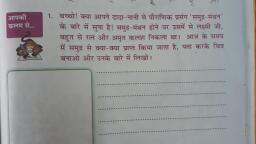 आपकी
कलम से...
1. बच्चो! क्या आपने दादा-नानी से पौराणिक प्रसंग 'समुद्र-मंथन'
के बारे में सुना है? समुद्र-मंथन होने पर उसमें से लक्ष्मी जी,
बहुत से रत्न और अमृत कलश निकला था। आज के समय
में समुद्र से क्या-क्या प्राप्त किया जाता है, पता करके चित्र
बनाओ और उनके बारे में लिखो।